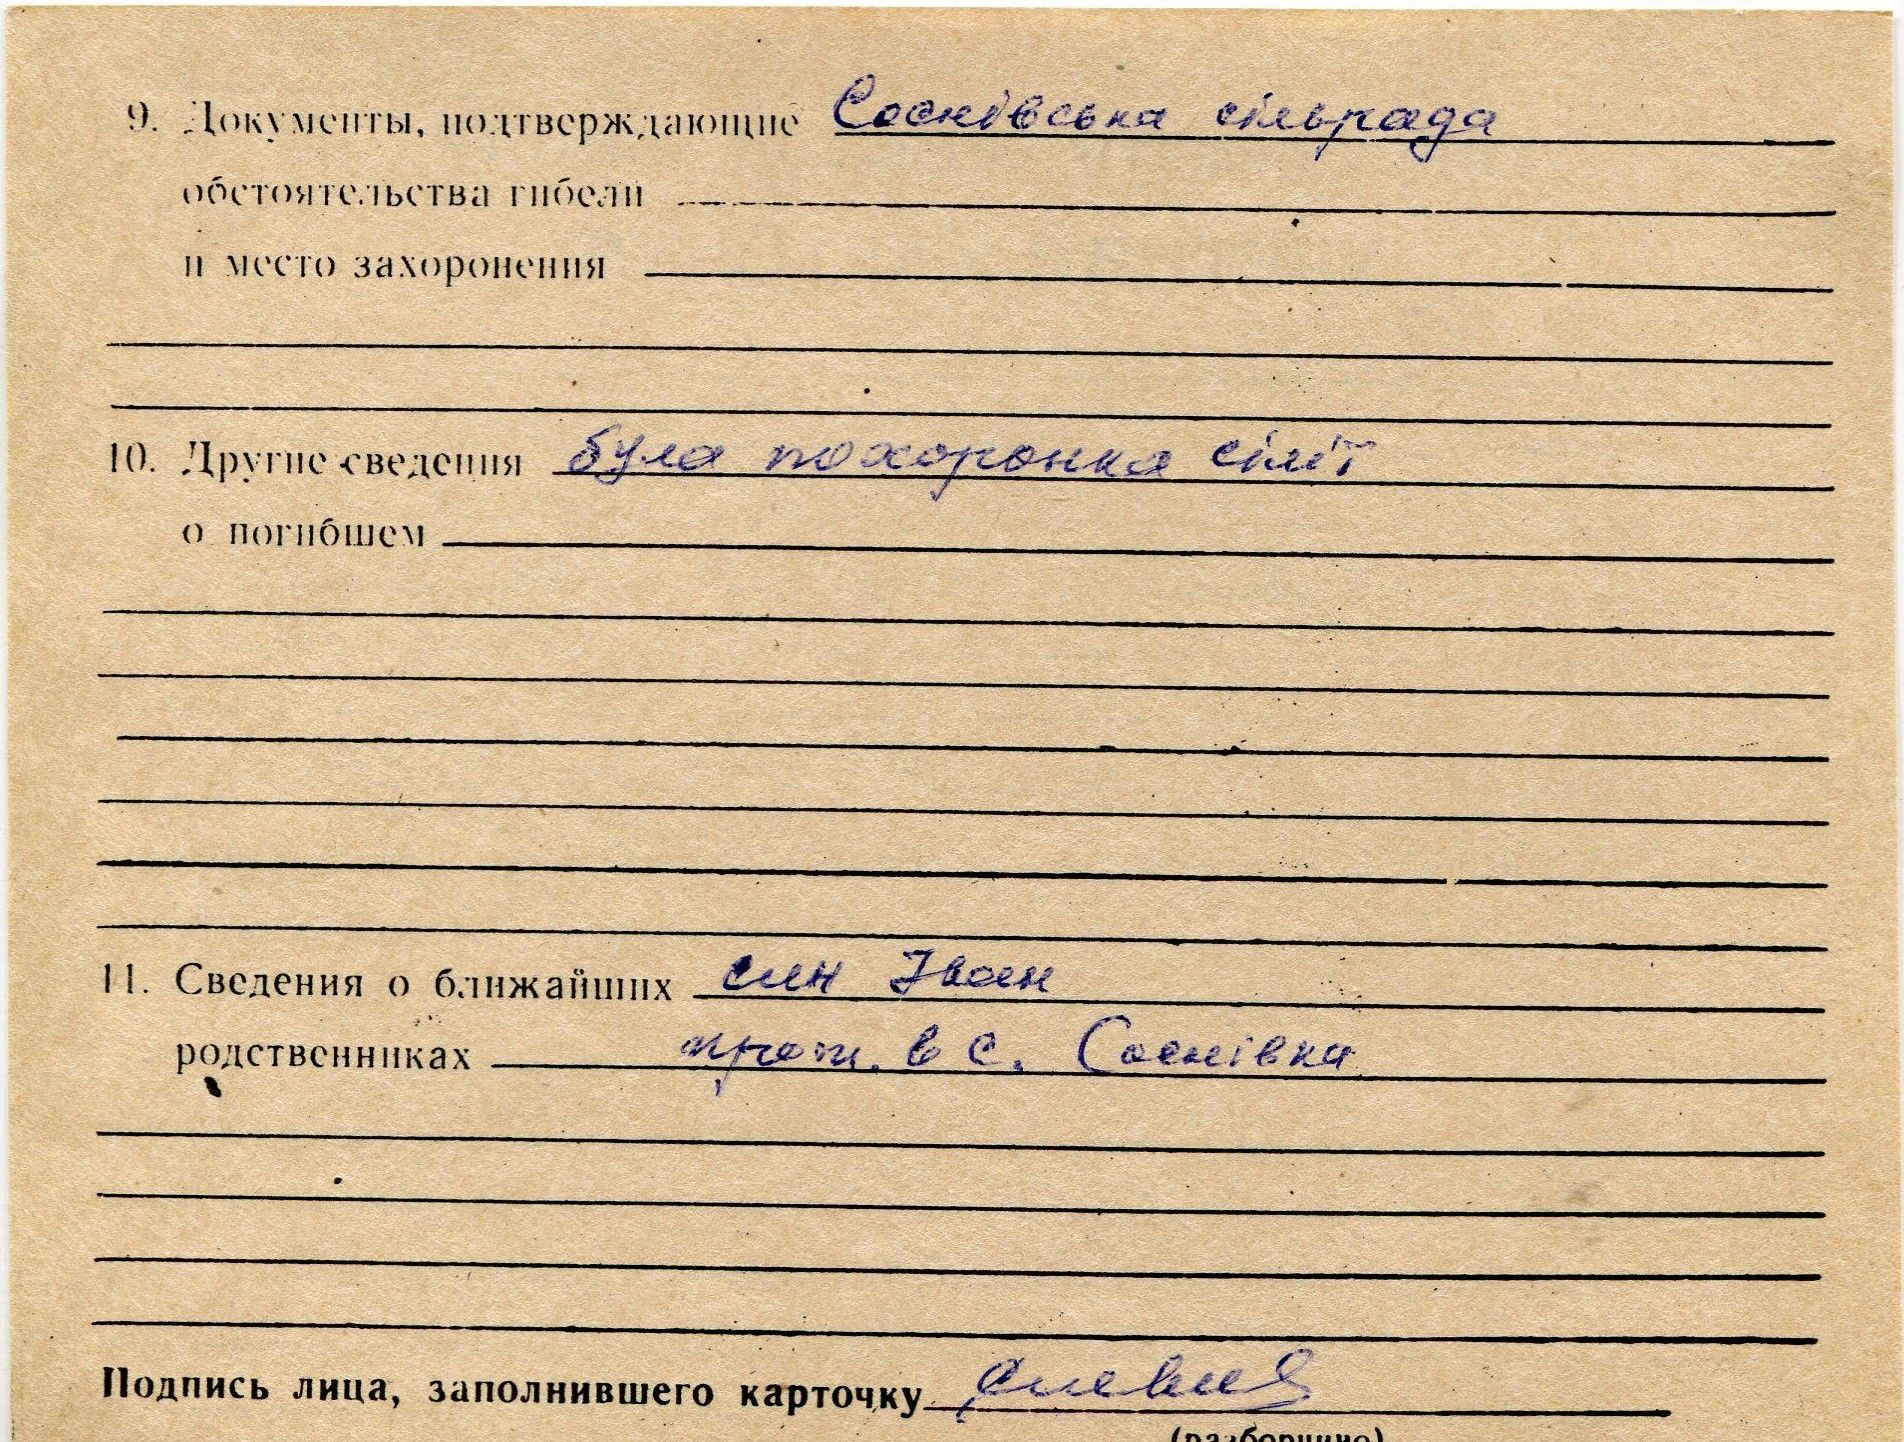 9. Документы, подтверждающие Соснівська сільрада
обстоятельства гибели
и место захоронения
10. Другие сведения була похоронка
о погибшем
11. Сведения о ближайших син Іван
родственниках прож. в с. Соснівка
Подпись лица, заполнившего карточку
(разборчиво)